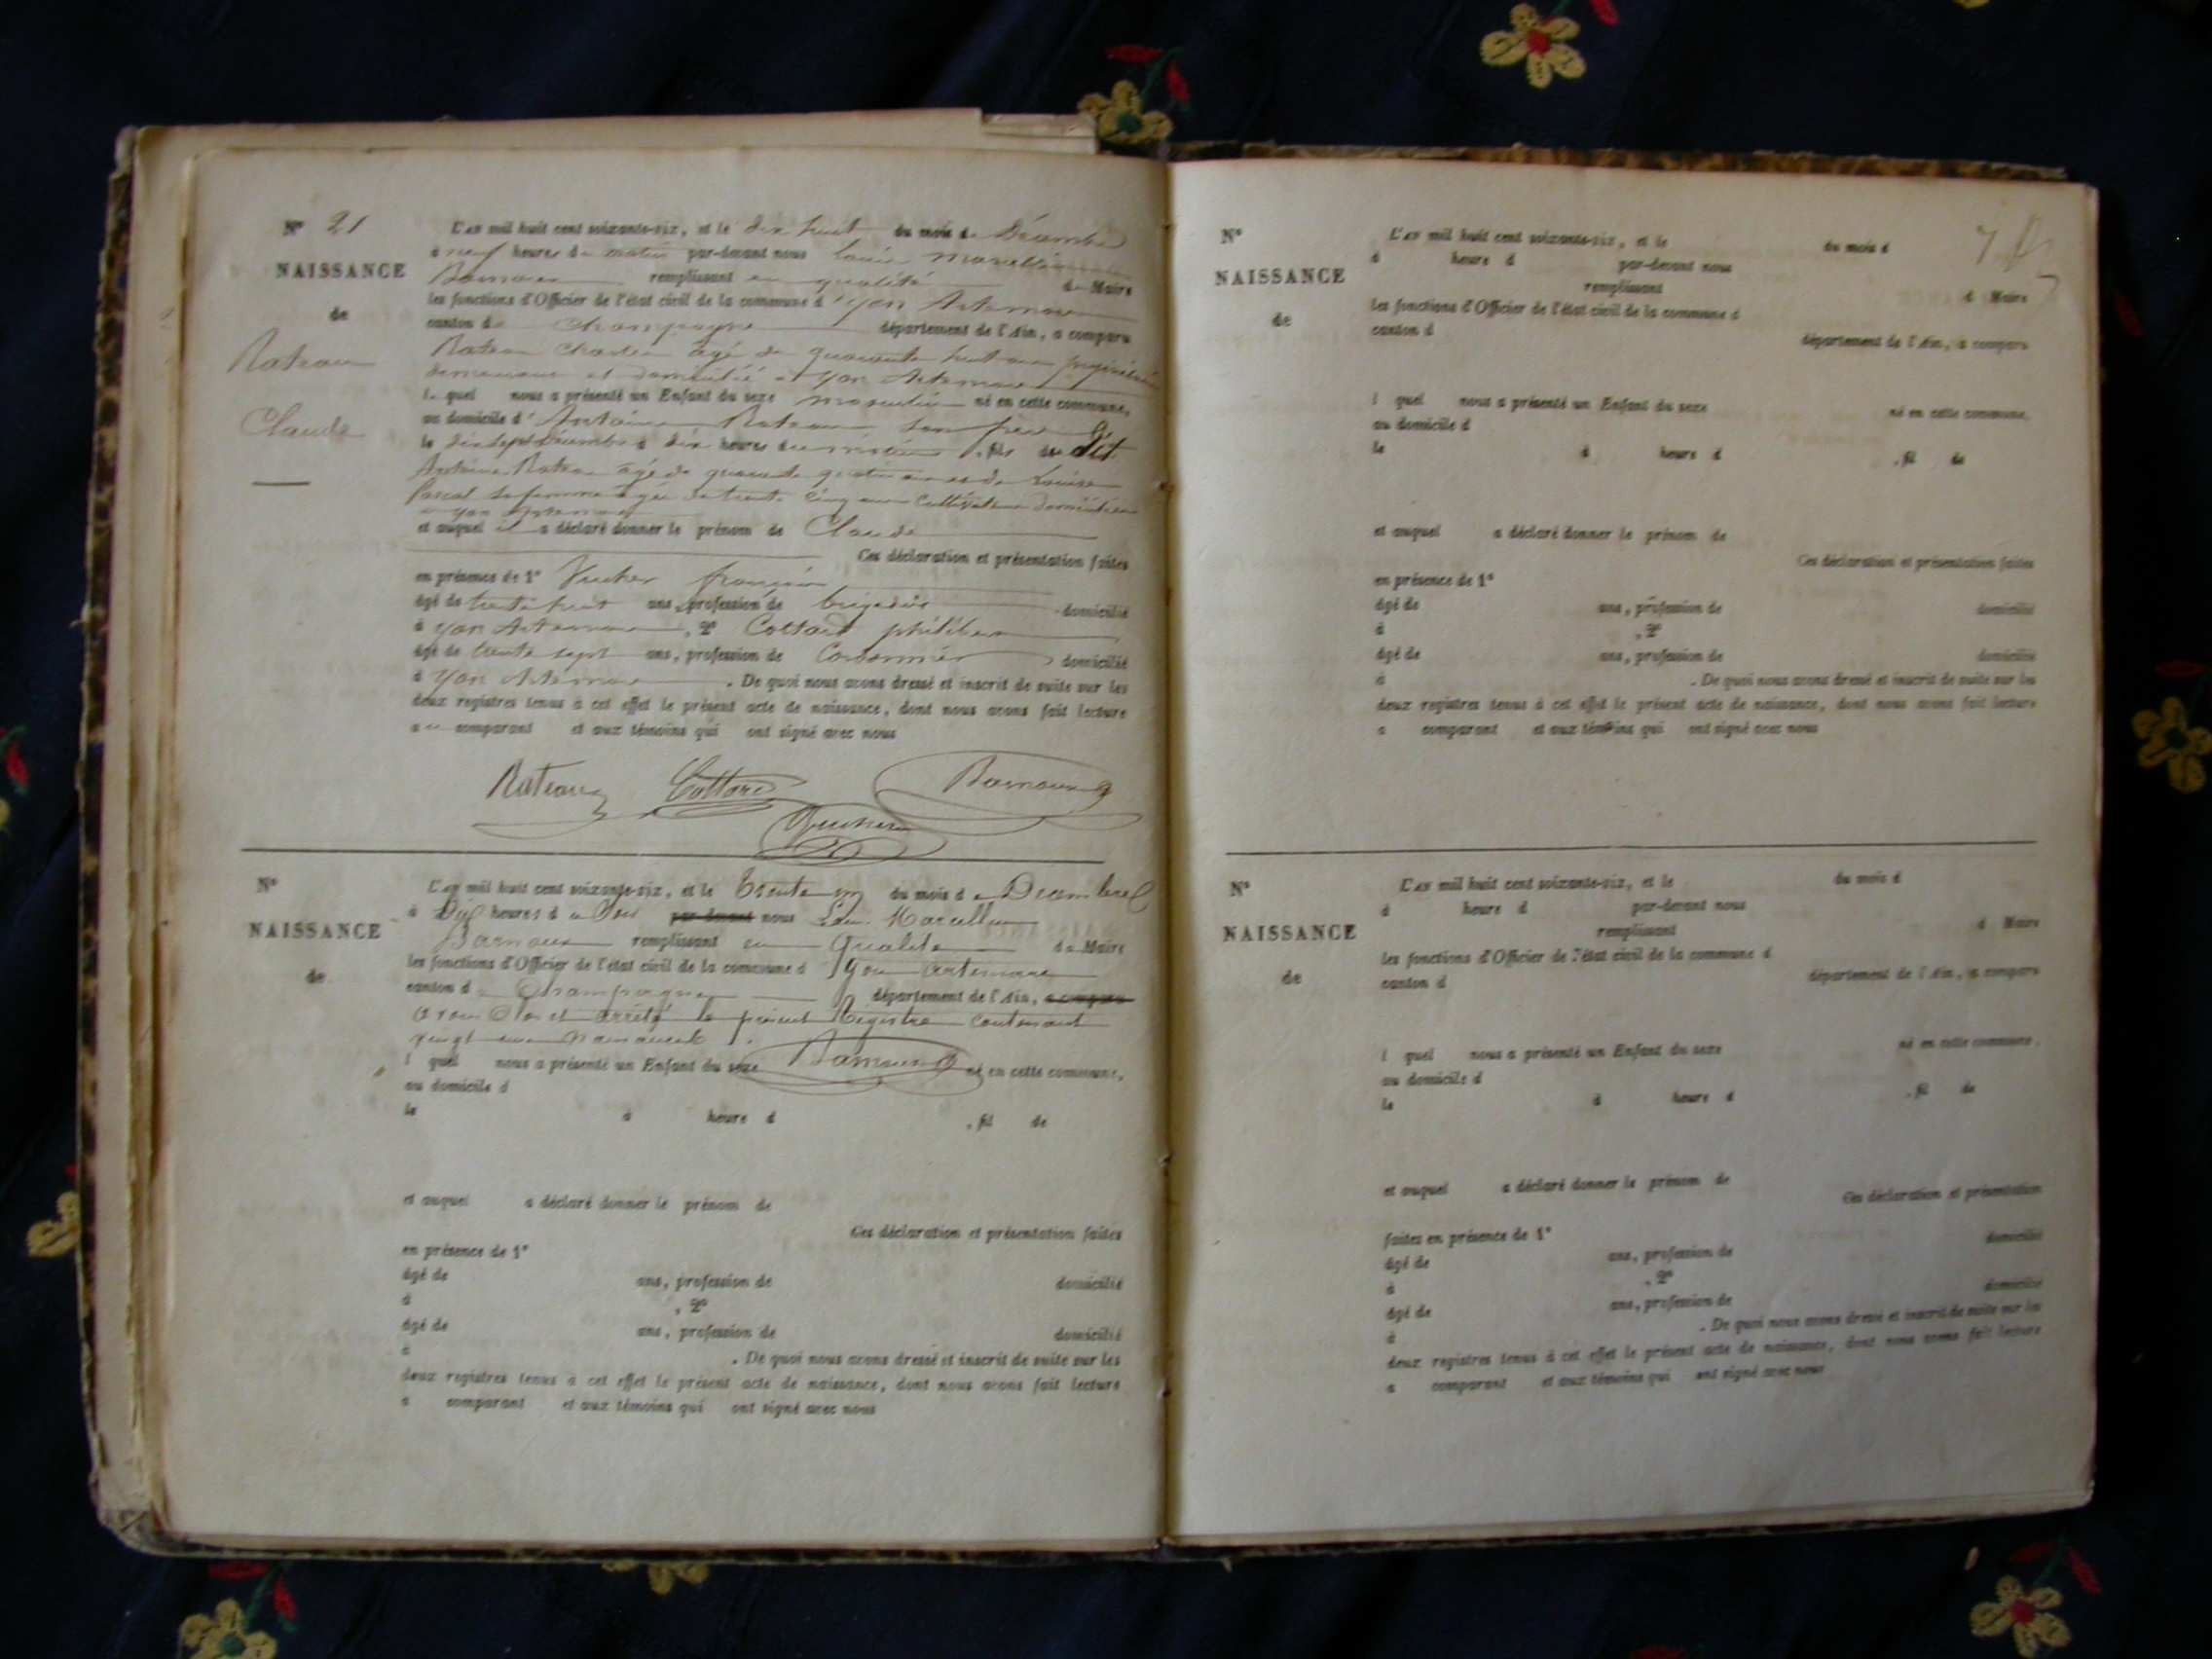 N° 21
NAISSANCE
de
Rateau
Claude
L'an mil huit cent soixante-six, et le dix huit du mois de Décembre
à neuf heures du matin par-devant nous Louis Marcellin
Barnoux remplissant en qualité de Maire
les fonctions d'Officier de l'état civil de la commune d'yon Artemare
canton de Champagne département de l'Ain, a comparu
Rateau Charles âgé de quarante huit ans propriétaire
demeurant et domicilié à yon Artemare
lequel nous a présenté un Enfant du sexe masculin né en cette commune,
au domicile d'Antoine Rateau son frère
le dix sept Décembre à dix heures du , fils du dit
Antoine Rateau âgé de quarante quatre ans et de Louise
Pascal sa femme âgée de trente cinq ans cultivateurs domiciliés
à yon Artemare
et auquel il a déclaré donner le prénom de Claude
Ces déclaration et présentation faites
en présence de 1° françois
âgé de trente huit ans, profession de brigadier domicilié
à yon Artemare, 2° Cottard philibert
âgé de trente sept ans, profession de Cordonnier domicilié
à yon Artemare. De quoi nous avons dressé et inscrit de suite sur les
deux registres tenus à cet effet le présent acte de naissance, dont nous avons fait lecture
au comparant et aux témoins qui ont signé avec nous
Rateau Cottard Barnoux
N°
NAISSANCE
de
L'an mil huit cent soixante-six, et le trente un du mois de Décembre
à heures du Soir par-devant nous Louis Marcellin
Barnoux remplissant en qualité de Maire
les fonctions d'Officier de l'état civil de la commune d'yon artemare
canton de Champagne département de l'Ain, a comparu
avons Clos et arrêté le présent Registre contenant
vingt une naissances.
l quel nous a présenté un Enfant du sexe Barnoux né en cette commune,
au domicile d
le à heure d , fil de
et auquel a déclaré donner le prénom de
Ces déclaration et présentation faites
en présence de 1°
âgé de ans, profession de domicilié
à , 2°
âgé de ans, profession de domicilié
à . De quoi nous avons dressé et inscrit de suite sur les
deux registres tenus à cet effet le présent acte de naissance, dont nous avons fait lecture
a comparant et aux témoins qui ont signé avec nous
N°
NAISSANCE
de
7
L'an mil huit cent soixante-six, et le du mois d
à heure d par-devant nous
remplissant d Maire
les fonctions d'Officier de l'état civil de la commune d
canton d département de l'Ain, a comparu
l quel nous a présenté un Enfant du sexe né en cette commune,
au domicile d
le à heure d , fil de
et auquel a déclaré donner le prénom de
Ces déclaration et présentation faites
en présence de 1°
âgé de ans, profession de domicilié
à , 2°
âgé de ans, profession de domicilié
à . De quoi nous avons dressé et inscrit de suite sur les
deux registres tenus à cet effet le présent acte de naissance, dont nous avons fait lecture
a comparant et aux témoins qui ont signé avec nous
N°
NAISSANCE
de
L'an mil huit cent soixante-six, et le du mois d
à heure d par-devant nous
remplissant d Maire
les fonctions d'Officier de l'état civil de la commune d
canton d département de l'Ain, a comparu
l quel nous a présenté un Enfant du sexe né en cette commune,
au domicile d
le à heure d , fil de
et auquel a déclaré donner le prénom de
Ces déclaration et présentation
faites en présence de 1°
âgé de ans, profession de domicilié
à , 2°
âgé de ans, profession de domicilié
à . De quoi nous avons dressé et inscrit de suite sur les
deux registres tenus à cet effet le présent acte de naissance, dont nous avons fait lecture
a comparant et aux témoins qui ont signé avec nous